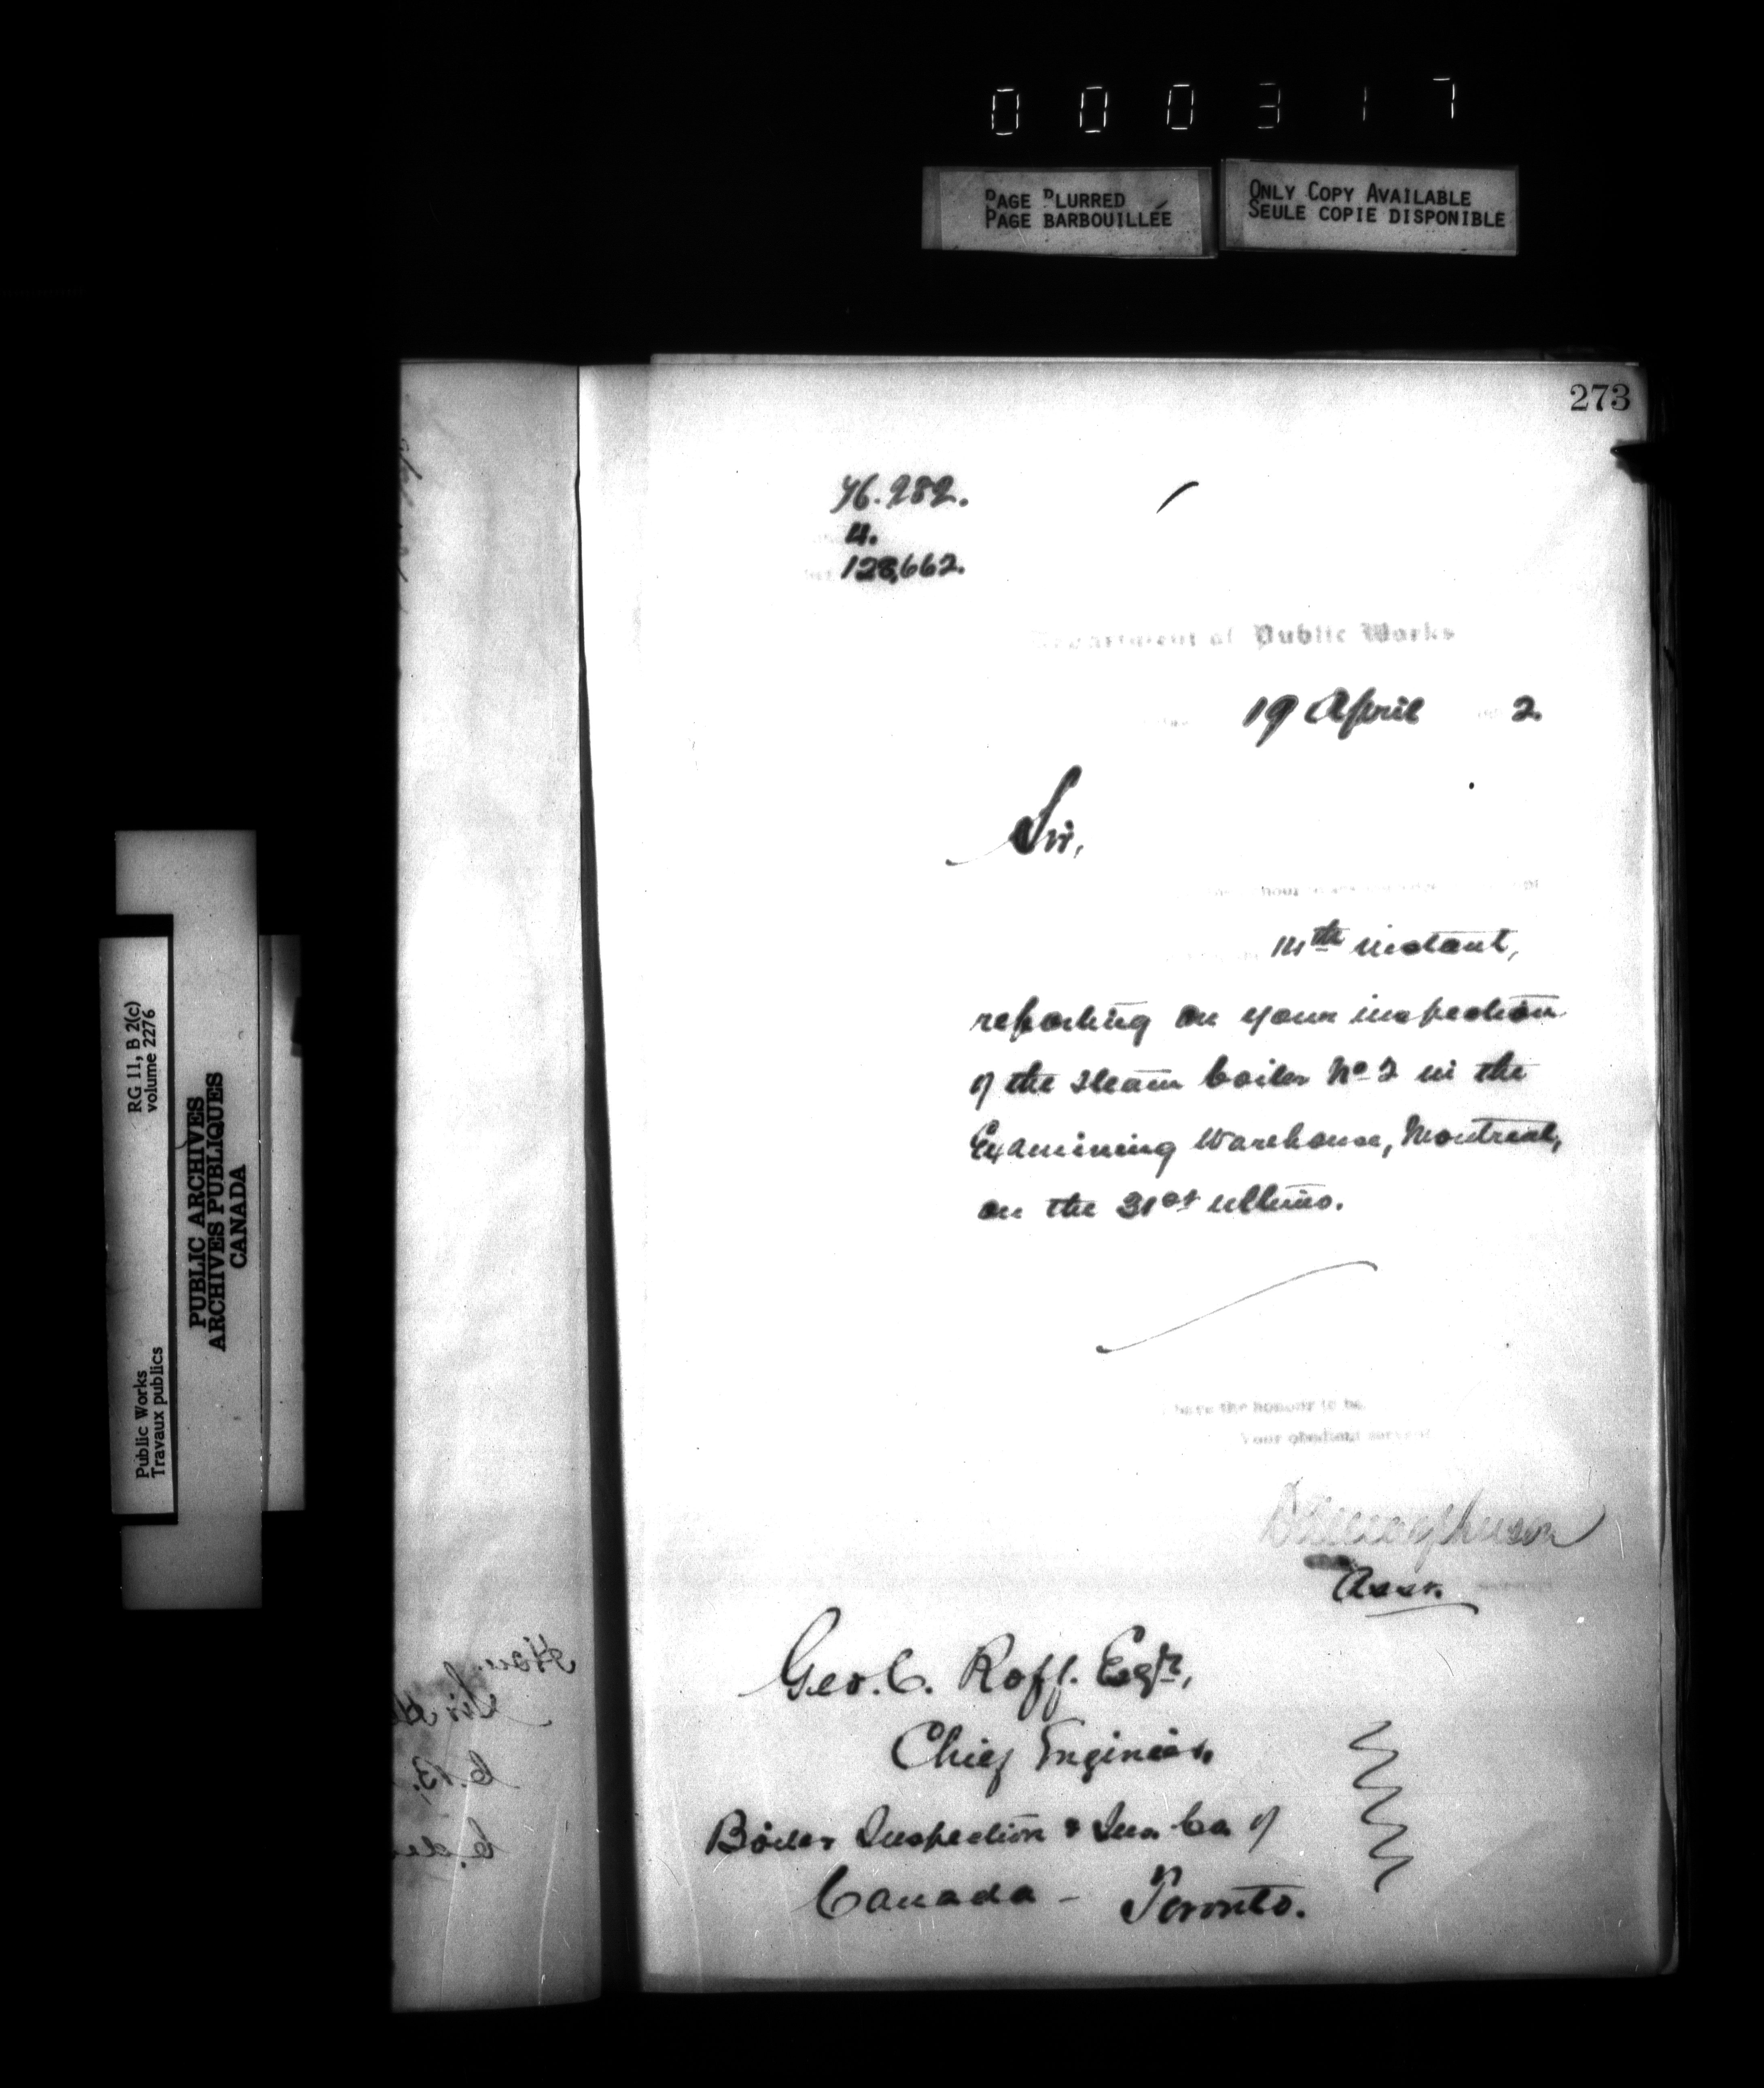 000317
PAGE BLURRED
PAGE BARBOUILLÉE
ONLY COPY AVAILABLE
SEULE COPIE DISPONIBLE
273
76.282.
4.
128,662.
Department of Public Works
19 April 2.
Sir,
14th instant,
reporting on your inspection
of the steam boiler No 2 in the
Examining Warehouse, Montreal,
on the 31st ultimo.
have the honour to be
Your obedient servant
Geo. C. Roff. Esqr,
Chief Engineer,
Boiler Inspection & Ins. Co. of
Canada - Toronto.
RG 11, B 2(c)
volume 2276
PUBLIC ARCHIVES
ARCHIVES PUBLIQUES
CANADA
Public Works
Travaux publics